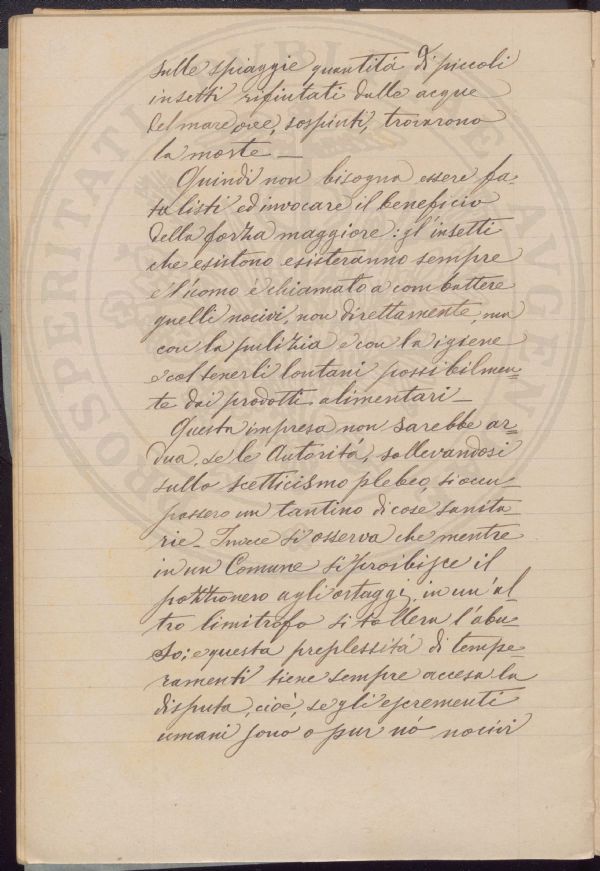 sulle spiaggie quantitá di piccoli
insetti rifiutati dalle acque
del mare ove, sospinti, trovarono
la morte _
Quindi non bisogna essere fa-
talisti ed invocare il beneficio
della forza maggiore: gl'insetti
che esistono esisteranno sempre
e l'uomo é chiamato a combattere
quelli nocivi, non direttamente, ma
con la pulizia e con la igiene
e col tenerli lontani possibilmen=
te dai prodotti alimentari _
Questa impresa non sarebbe ar=
dua, se le Autoritá, sollevandosi
sullo scetticismo plebeo, si occu-
passero un tantino di cose sanita
rie _ Invece si osserva che mentre
in un Comune si proibisce il
pozzonero agli ortaggi, in un'al
tro limitrofo si tollera l'abu-
so; e questa preplessitá di tempe
ramenti tiene sempre accesa la
disputa, cioé, se gli escrementi
umani sono o pur nó nocivi
PROSPERITATI PUBLICAE AUGEN